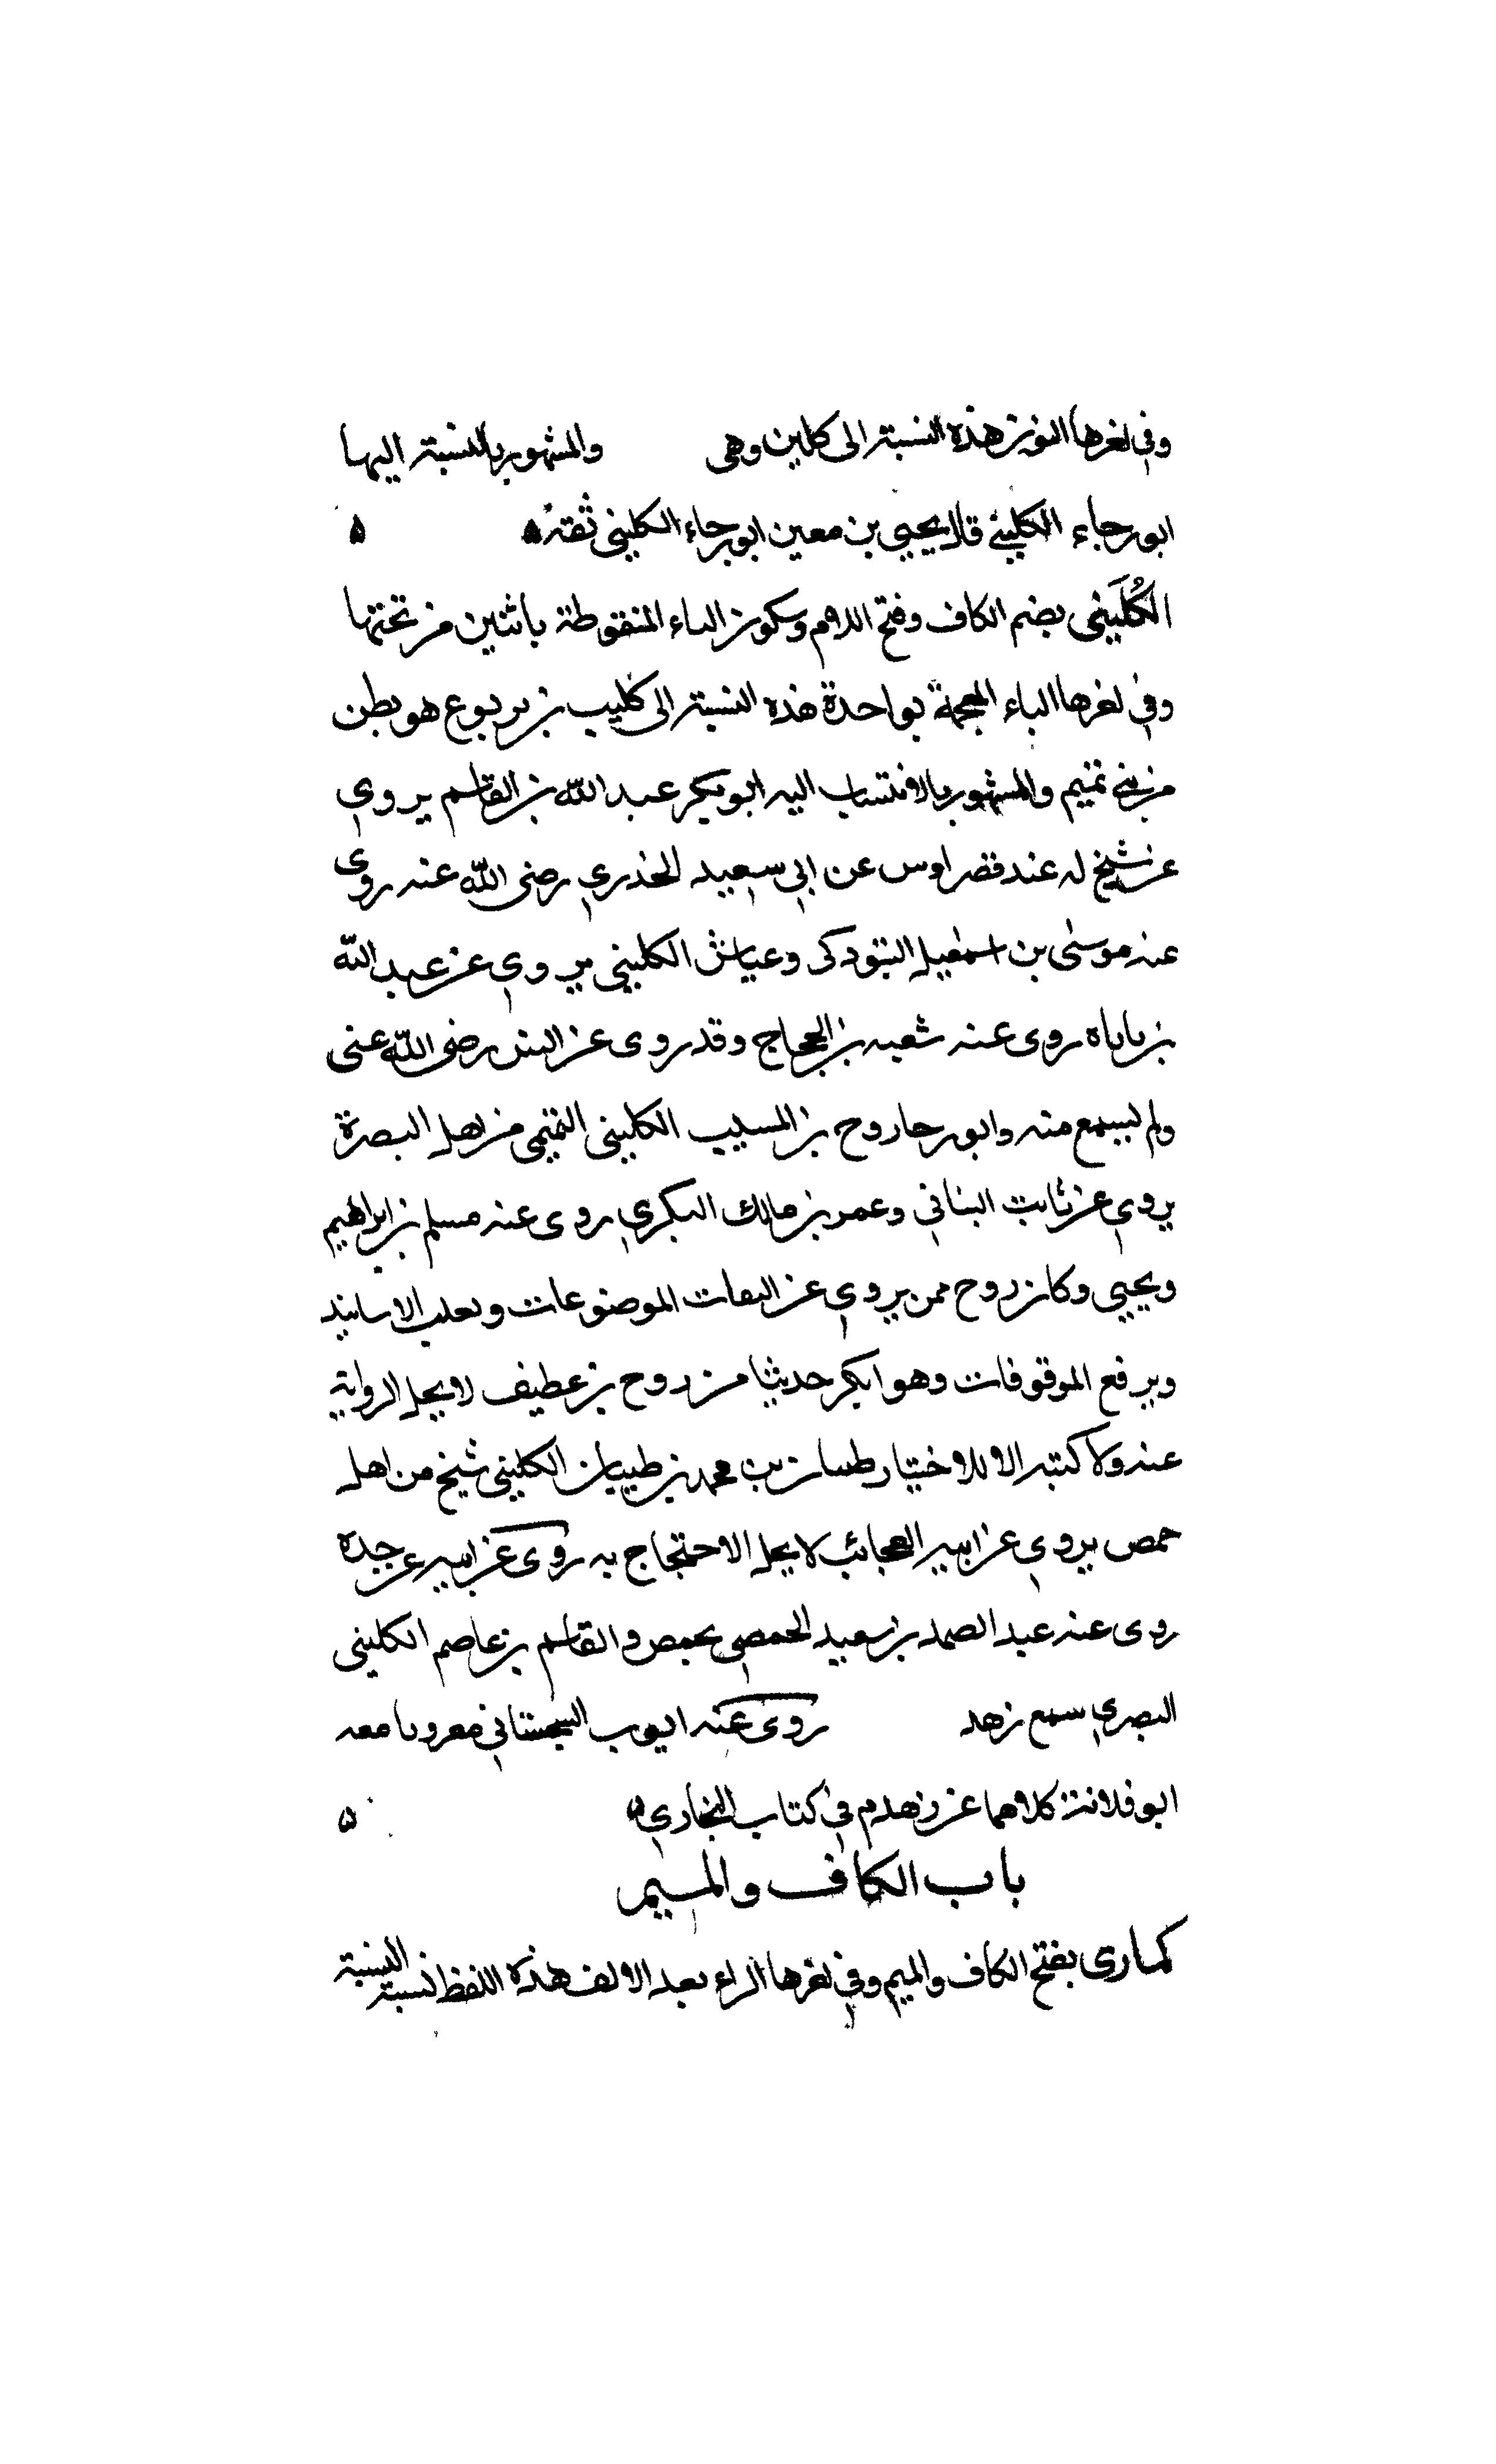 وفي اخرها النون هذه النسبة الى كلين وهى والمشهور بالنسبة اليها
ابو رجاء الكليني قال يحيى بن معين ابو رجاء الكليني ثقة ه ه
الكُلَيبى بضم الكاف وفتح اللام وسكون الياء المنقوطة باثنين من تحتها
وفي اخرها الباء المعجمة بواحدة هذه النسبة الى كليب بن يربوع هو بطن
من بني تميم والمشهور بالانتساب اليه ابو بكر عبد الله بن القاسم يروي
عن شيخ له عند قصر اوس عن ابي سعيد الخدري رضى الله عنه روى
عنه موسى بن اسمعيل التبوذكى وعياش الكليبى يروي عن عبد الله
بن باباه روى عنه شعبه بن الحجاج وقد روى عن انس رضى الله عنى
ولم يسمع منه وابو رجا روح بن المسيب الكليبى التميمى من اهل البصرة
يروي عن ثابت البناني وعمر بن مالك البكري روى عنه مسلم بن ابراهيم
ويحيى وكان روح ممن يروي عن الثقات الموضوعات ويقلب الاسانيد
ويرفع الموقوفات وهو انكر حديثا من روح بن غطيف لا يحل الرواية
عنه ولا كتبه الا للاختبار طيبان بن محمد بن ظبيان الكليبى شيخ من اهل
حمص يروي عن ابيه العجائب لا يحل الاحتجاج به روى عن ابيه عن جده
روى عنه عبد الصمد بن سعيد الحمصى بحمص والقاسم بن عاصم الكليبى
البصري سمع زهد روى عنه ايوب السجستاني مقرونا معه
ابو قلابة كلاهما عن زهدم في كتاب البخاري ه ه
باب الكاف والميم
كمارى بفتح الكاف والميم وفي اخرها الراء بعد الالف هذه اللفظ لنسبة النسبة